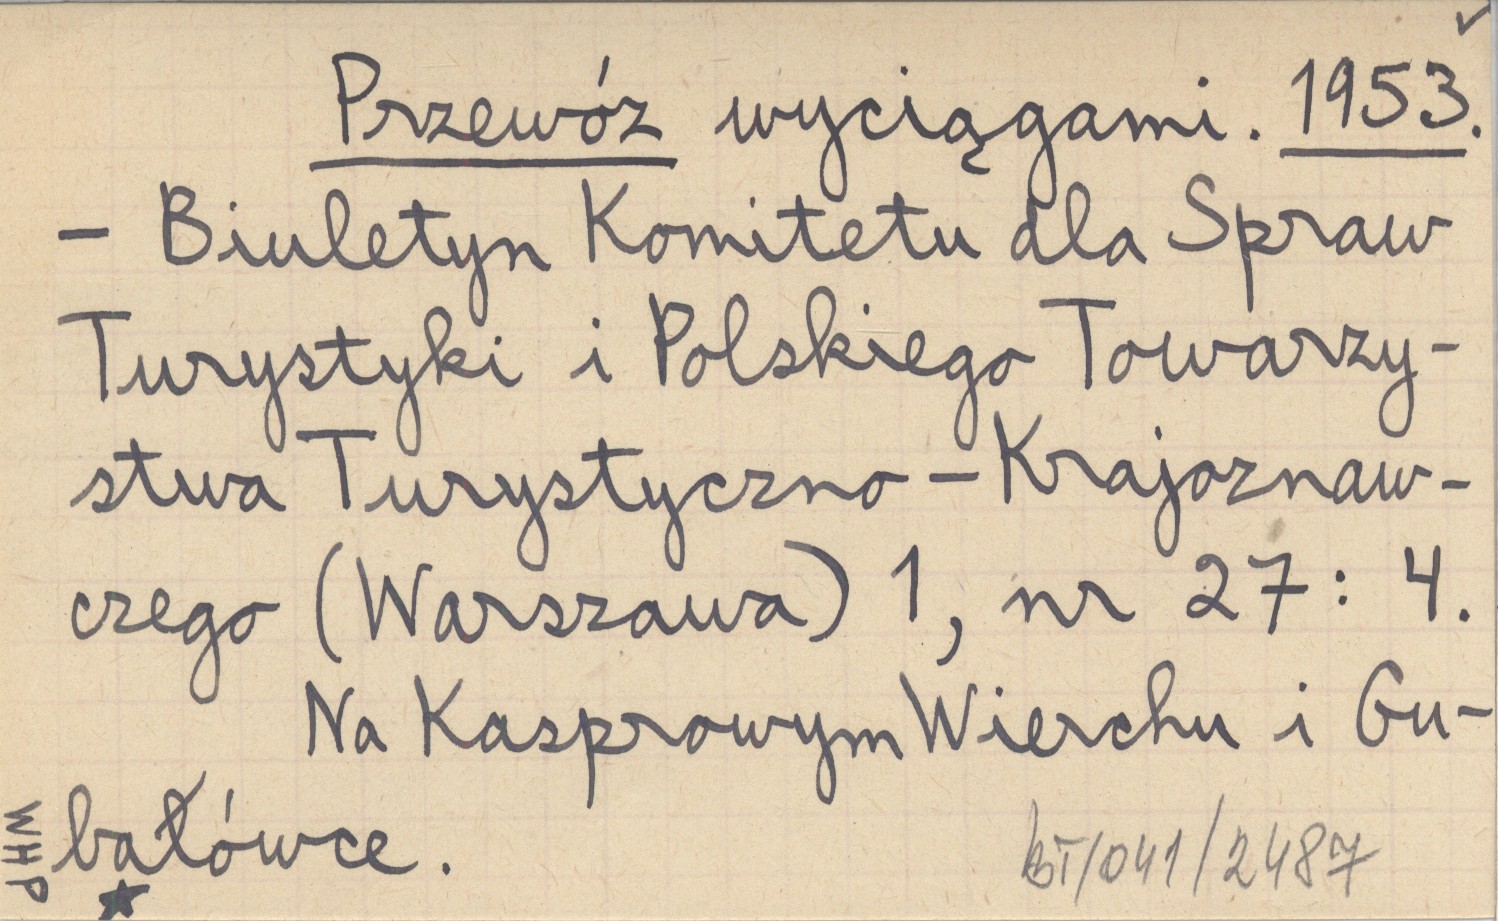 Przewóz wyciągami. 1953.
- Biuletyn Komitetu dla Spraw
Turystyki i Polskiego Towarzy-
stwa Turystyczno-Krajoznaw-
czego (Warszawa) 1, nr 27: 4.
Na Kasprowym Wierchu i Gu-
bałówce.
WHP
BT/041/2487